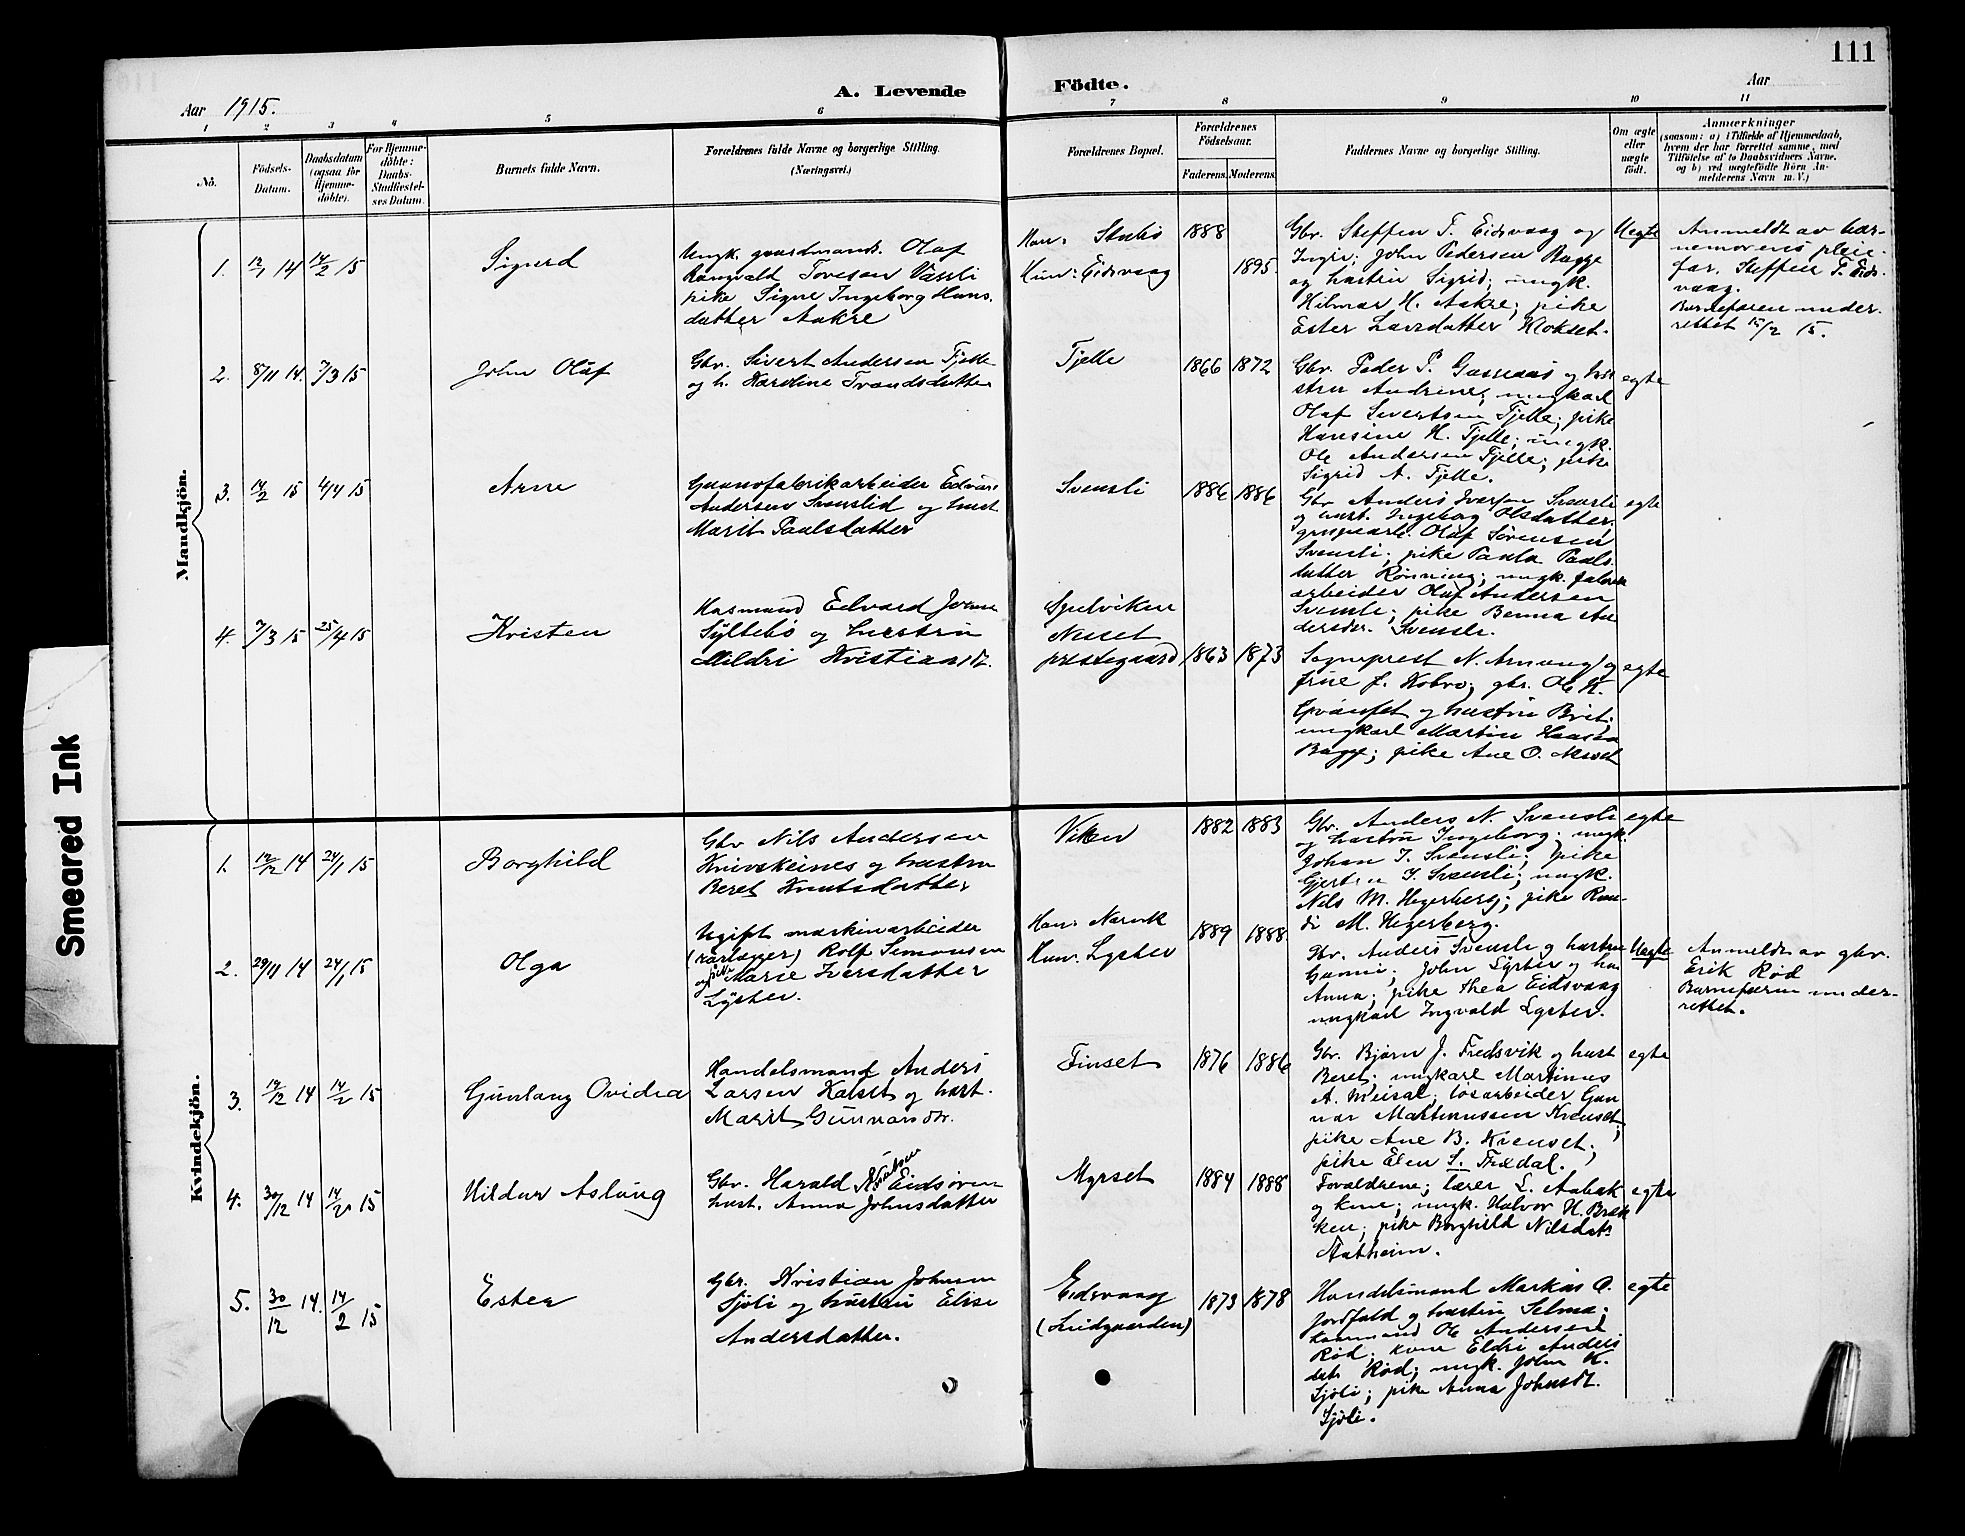 111
A. Levende Födte.
Aar 1915.
Aar
1 2 3 4 5 6 7 8 9 10 11
No.
Födsels-
Datum.
Daabsdatum
(ogsaa for
Hjemme-
döbte).
For Hjemme-
döbte:
Daabs-
Stadfæstel-
ses Datum.
Barnets fulde Navn.
Forældrenes fulde Navne og borgerlige Stilling.
(Næringsvei.)
Forældrenes Bopæl.
Forældrenes
Födselsaar.
Faderens. Moderens.
Faddernes Navne og borgerlige Stilling.
Om ægte
eller
uægte
født.
Anmærkninger
(saasom: a) i Tilfælde af Hjemmedaab,
hvem der har forrettet samme, med
Tilföielse af to Daabsvidners Navne,
og b) ved uægtefödte Börn An-
melderens Navn m. V.)
Mandkjön.
1.
12/1 14
14/2 15
Sigurd
Ungk. gaardmands. Olaf
Rangvald Toresen Vassli
pike Signe Ingeborg Hans-
datter Aakre
Han:
Hun: Eidsvaag
1888
1895.
Gbr. Steffen T. Eidsvaag og
Ingri; John Pedersen Bugge
og hustru Sigrid; ungk.
Hilmar H. Aakre; pike
Ester Larsdatter Klokset.
Uegte
Anmeldt av bar-
nemorens pleie-
far. Steffen T. Eids-
vaag.
Barnefaren under-
rettet 15/2 15.
2.
8/11 14.
7/3 15
John Olaf
Gbr. Sivert Andersen Tjelle
og h. Karoline Trondsdatter
Tjelle
1866 1872
Gbr. Peder P. og hu-
stru Andrine; ungkarl
Olaf Sivertsen Tjelle; pike
Hansine H. Tjelle; ungk.
Ole Andersen Tjelle; pike
Sigrid A. Tjelle.
egte
3.
14/2 15
4/4 15
Arne
Guanofabrikarbeider Edvard
Andersen Svenslid og hust
Marit Paalsdatter
Svensli
1886 1886
Gbr Anders Iversen Svensli
og hust. Ingeborg Olsdatter;
Olaf Sørensen
Svensli; pike Paula Paals-
datter Rønning; ungk. fabrik
arbeider Olaf Andersen
Svensli; pike Benna An
dersdtr. Svensli.
egte
4.
7/3 15
25/4 15
Kristen
Husmand Edvard Joens
Syltebø og hustru
Mildri Kristiansdt.
Spelviken
Nesset
prestegaard
1863 1873
Sogneprest N. Amang og
frue f. Kobro; gbr. Ole K.
og hustru Brit;
ungkarl Martin Hansen
Bugge; pike Ane O. Nesset
egte
Kvindekjön.
1.
12/12 14
24/1 15
Borghild
Gbr Nils Andersen
Knivskeines og hustru
Beret Knutsdatter
Viken
1882 1883
Gbr. Anders N. Svensli
og hustru Ingeborg; ungk.
Johan I. Svensli; pike
I. Svensli; ungk.
Nils M. Hegerberg; pike Ran-
di M. Hegerberg.
egte
2.
29/11 14
24/1 15
Olga
Ugift maskinarbeider
(rørlægger) Rolf Simonsen
og pike Marie Iversdatter
Lyster.
Han: Narvik
Hun: Lyster
1889 1888.
Gbr. Anders Svensli og hustru
Gunni; John Lyster og hu.
Anna; pike Thea Eidsvaag
ungkarl Ingvald Lyster.
Uegte
Anmeldt av gbr.
Erik Rød
Barnefaren under-
rettet.
3.
14/12 14
14/2 15
Gunlaug Ovidia
Handelsmand Anders
Larsen Kalset og hust.
Marit Gunnarsdtr.
Finset
1876 1886
Gbr. Bjørn J. Fredsvik og hust
Beret; ungkarl Martinus
A. Meisal; løsarbeider Gun
nar Martinussen Kvenset;
pike Ane B. Kvenset;
pike Elen S. Tredal.
egte
4.
30/12 14
14/2 15
Hildur Aslaug
Gbr. Harald Eidsøren
hust. Anna Johnsdatter
Myrset
1884 1888
Forældrene; lærer L. Aabak
og kone; ungk. Halvor H. Bræk
ken; pike Borghild Nilsdatr.
egte
5.
30/12 14.
14/2 15
Ester
Gbr. Kristian Johnsen
Sjøli og hustru Elise
Andersdatter.
Eidsvaag
(Lindgaarden)
1873 1878
Handelsmand Markus O.
Jordfald og hustru Selma;
husmand Ole Andersen
Rød; kone Eldri Anders
datr. Rød; ungk. John K.
Sjøli; pike Anna Johnsdt.
Sjøli.
egte
Smeared Ink